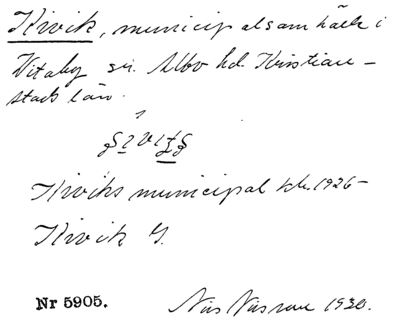 Kivik, municipalsamhälle i
Vitaby sn. Albo hd. Kristian-
stads län.
Kiviks municipal kk. 1926-
Kivik G.
Nr 5905.
Nils 1930.